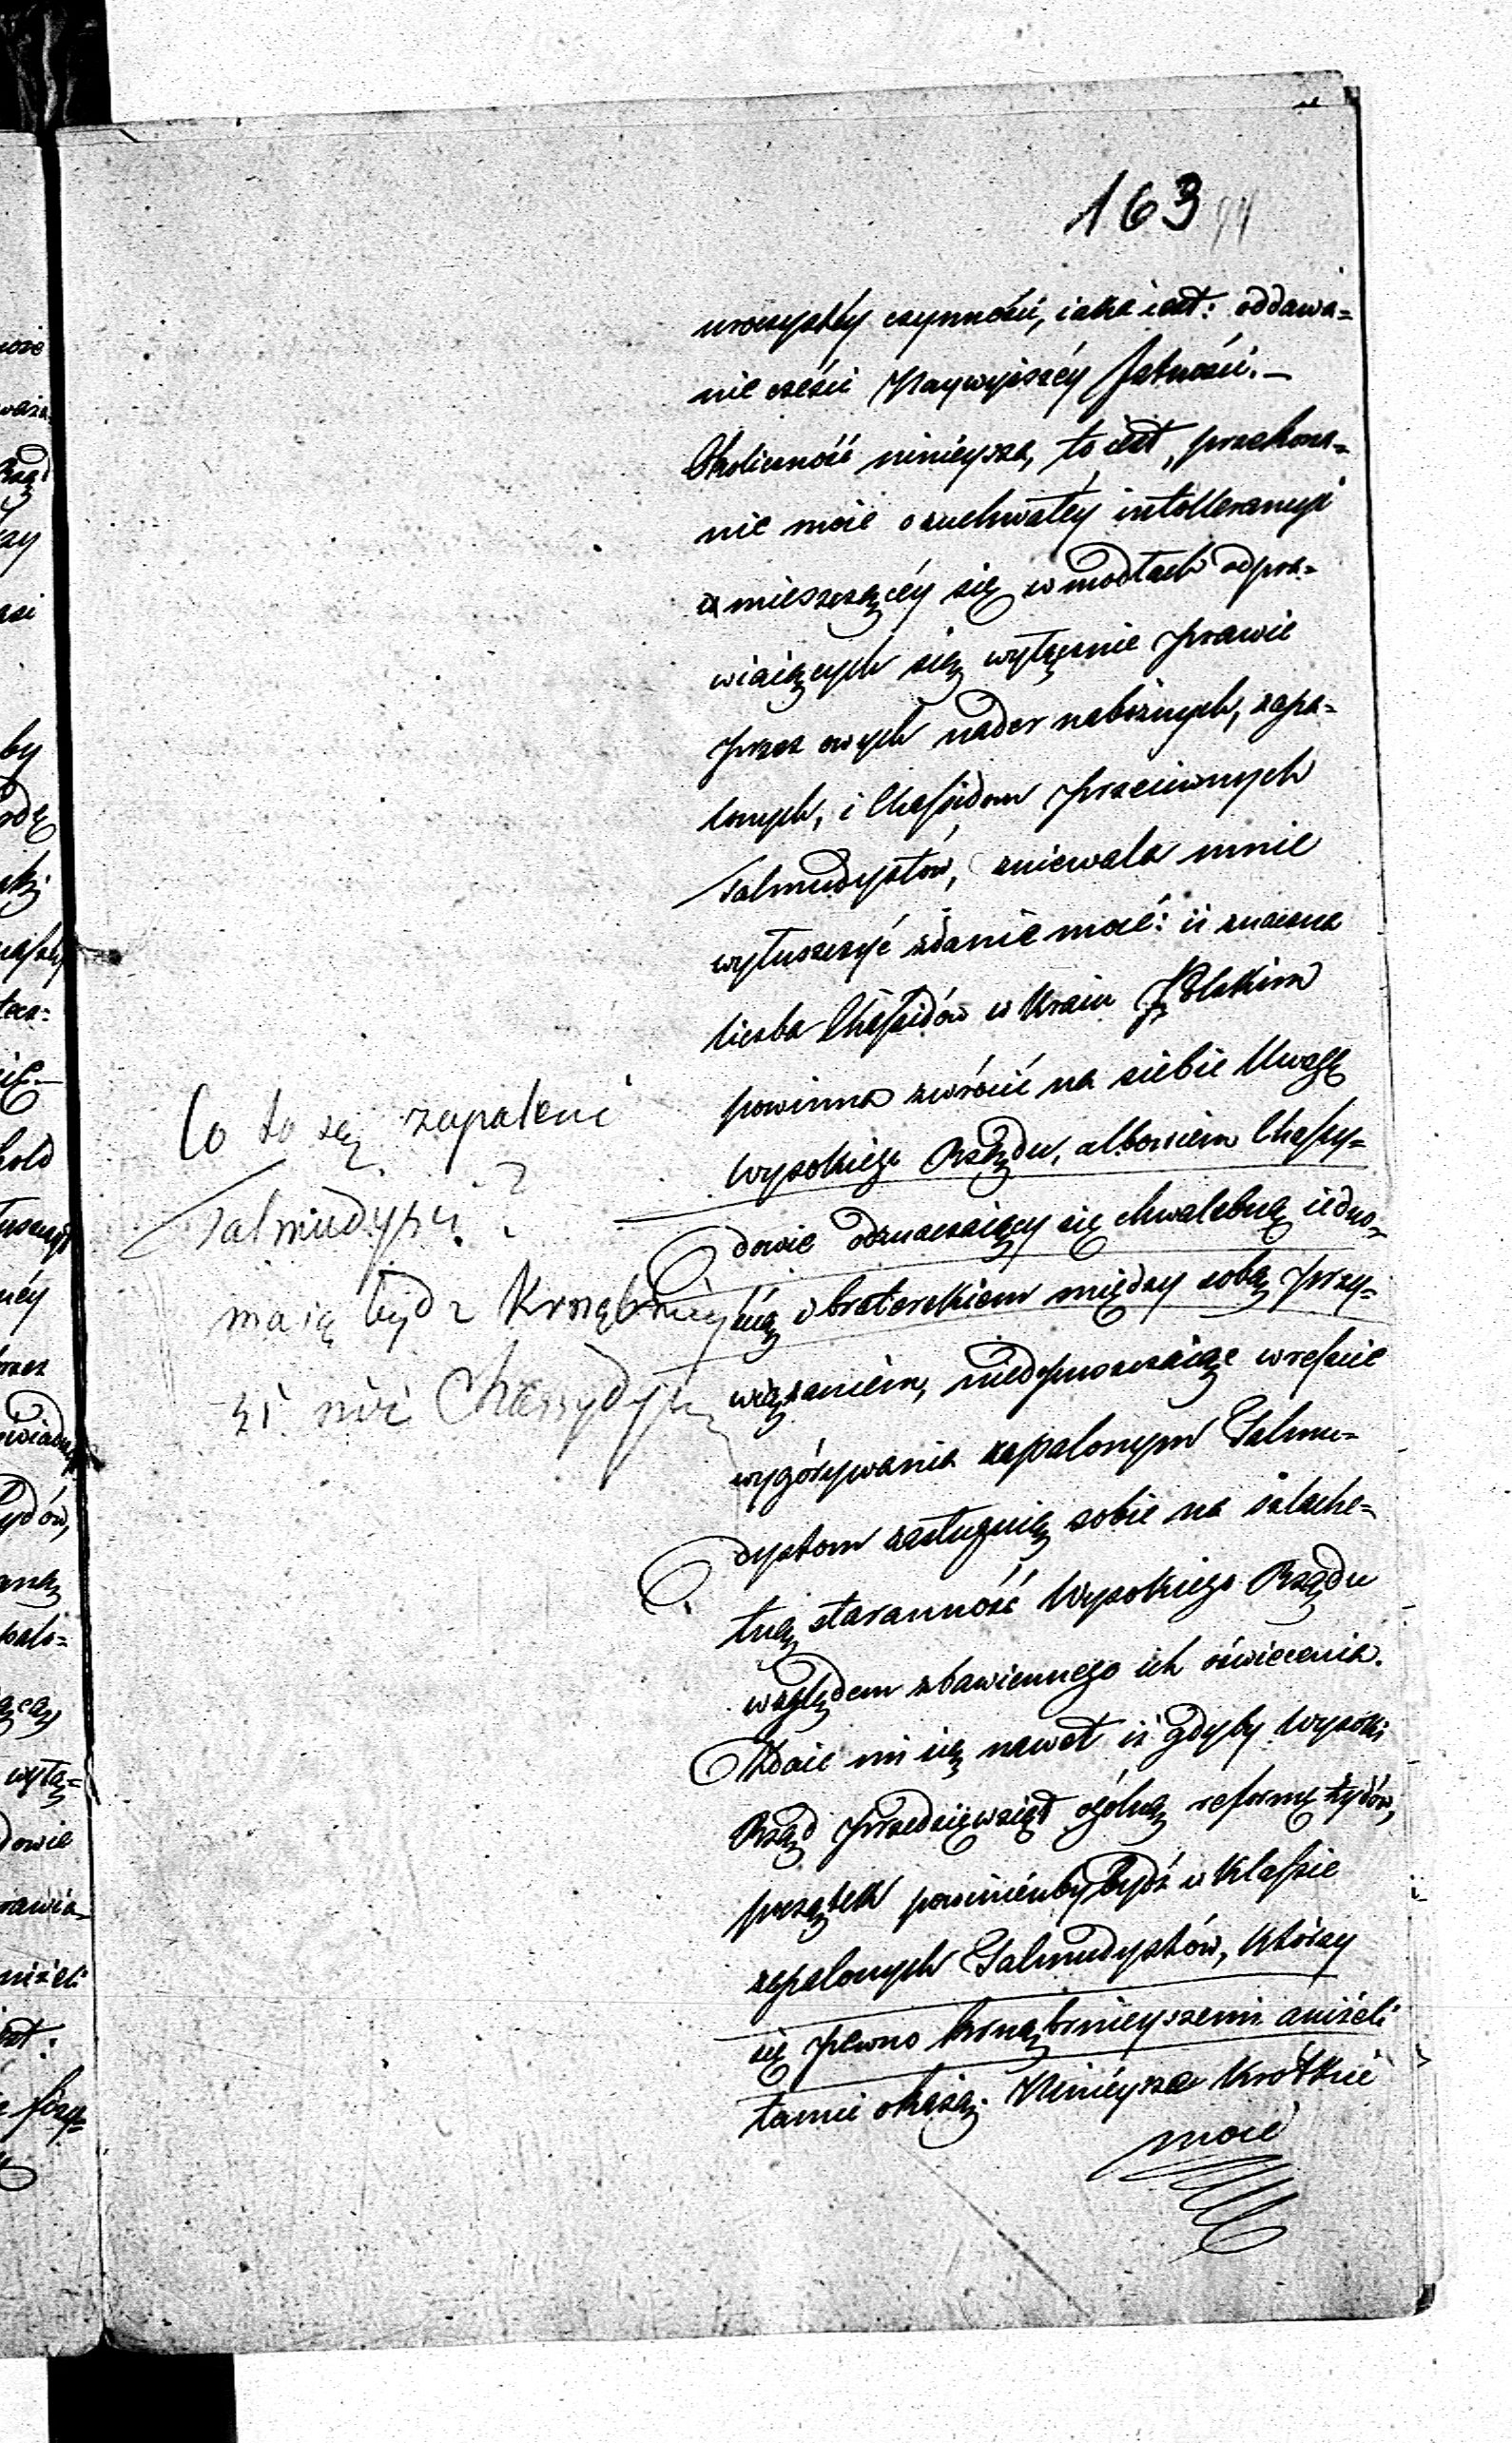 163
uroczystéy czynności, iaka iest: oddawa=
nie cześci Naywyższéy Istności.—
Okoliczność ninieysza, to iest, przekona=
nie moie o zuchwałéy intollerancyi
mieszczącéy się w modłach odpra=
wiaiących się wyłącznie prawie
przez owych nader nabożnych, zapa=
lonych, i Chassidom przeciwnych
Talmudystów, zniewala mnie
wyłuszczyć zdanie moie: iż znaczna
liczba Chassidów w Kraiu Polskim
powinna zwrócić na siebie Uwagę
Wysokiego Rządu, albowiem Chassy=
dowie odznaczaiący się chwalebną iedno=
ścią i braterskiem między sobą przy=
wiązaniem, niedopuszczaiąc wreszcie
wygórywania zapalonym Talmu=
dystom zasługuią sobie na szlache=
tną staranność Wysokiego Rządu
względem zbawiennego ich oświecenia.
Zdaie mi się nawet iż gdyby Wysoki
Rząd przedsięwziął ogólną reformę żydów,
początek powinienby bydź w Klassie
zapalonych Talmudystów, którzy
się pewno krnąbrnieyszemi aniżeli
tamci okażą. Ninieysze krótkie
moie
Co to są zapaleni
Talmudyści?
maią bydź krnąbrniey
si niż Chassydy